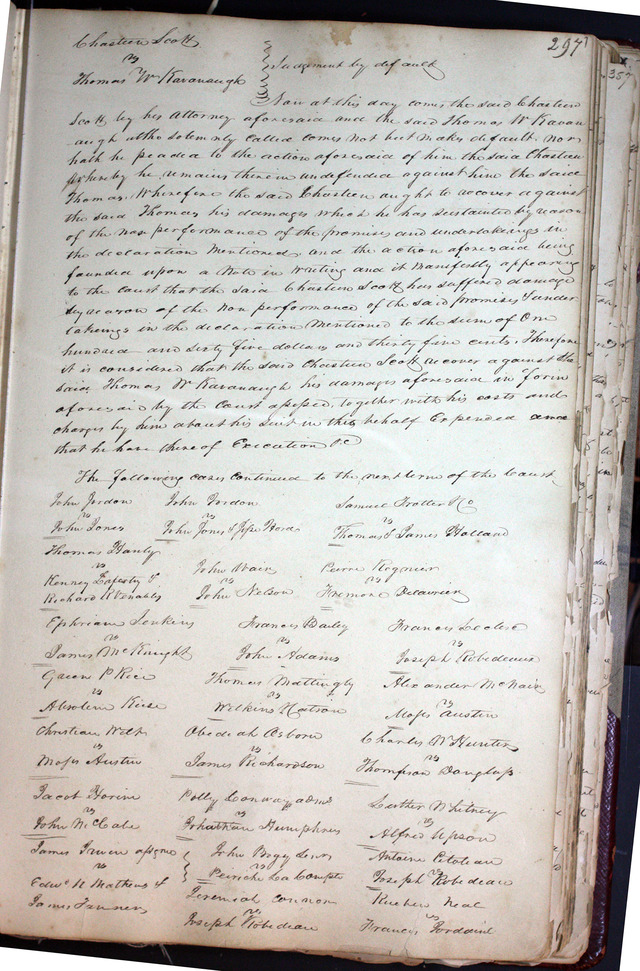 297
Chastien Scott
vs
Thomas W Kavanaugh
Judgement by default
Now at this day comes the said Chastien
Scott by his Attorney aforesaid and the said Thomas W Kavan
augh altho solemnly called comes not but makes default. nor
hath he pleaded to the action aforesaid of him the said Chastien
whereby he remains therein undefended against him the said
Thomas. Wherefore the said Chastien aught to recover against
the said Thomas his damages which he has sustained by reason
of the non performance of the promises and undertakings in
the declaration Mentioned, and the action aforesaid being
founded upon a Note in writing and it Manifestly appearing
to the Court that the said Chastien Scott has suffered damage
by reason of the Non performance of the said promises & under
takings in the declaration Mentioned to the sum of One
hundred and sixty five dollars and thirty five cents. Therefore
it is considered that the said Chastien Scott recover against the
said Thomas W Kavanaugh his damages aforesaid in form
aforesaid by the Court assessed, together with his costs and
charges by him about his suit in this behalf Expended and
that he have thereof Execution &c
The following cases continued to the next term of the Court
John Jordon John Jordon Samuel Trotter & Co
vs vs vs
John Jones John Jones & Jesse Thomas & James Holland
Thomas Hanly
vs John Wair Pierre Regnier
Kenney & vs vs
Richard Venables John Nelson Fremont Delaurier
Ephriam Jenkins Francis Bailey Francis Leclere
vs vs vs
James McKnight John Adams Joseph Robedeaux
Green P Rice Thomas Mattingly Alexander McNair
vs vs vs
Absolem Wilkins Watson Moses Austin
Christian Wilt Obediah Osborn Charles W Hunter
vs vs vs
Moses Austin James Richardson Thompson Douglass
Jacob Horine Polly Conway adms Luther Whitney
vs vs vs
John McCabe Johnathan Humphries Alfred Upson
James Irwin assgne John Bogy Antoine
vs vs vs
Edwd N Mathews & Joseph Robedeau
James Tanner Jeremiah Connor Rueben Neal
vs vs
Joseph Robedeau Francis